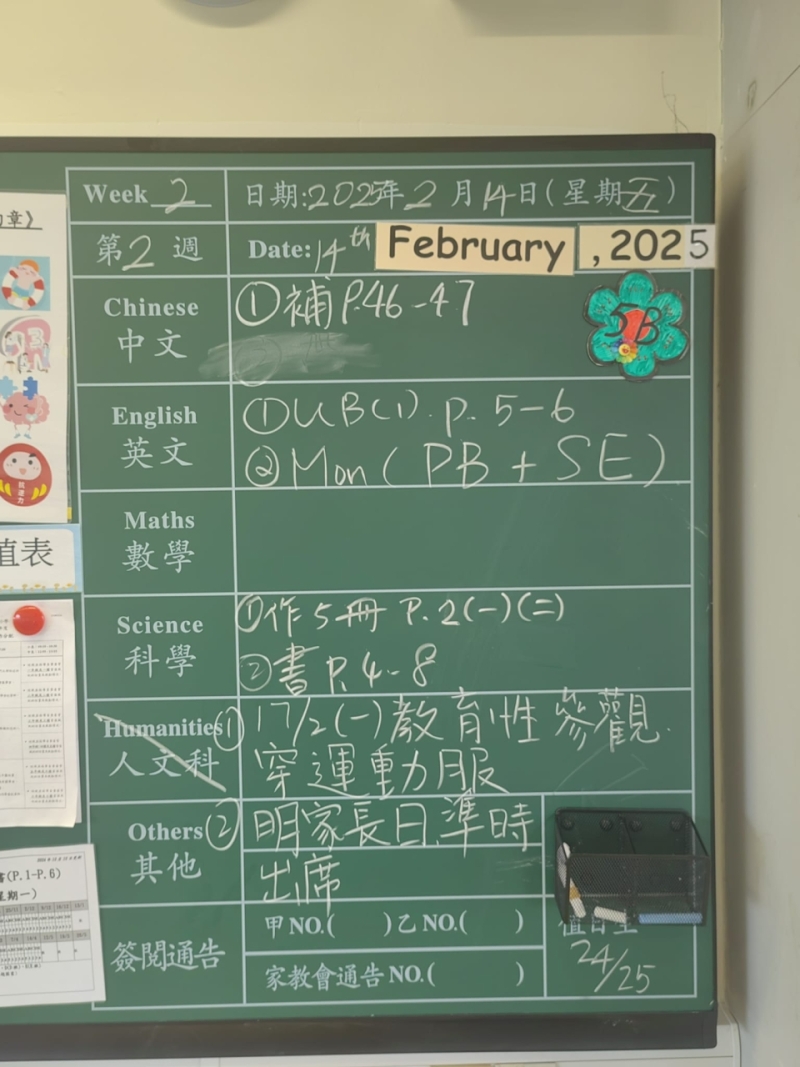 Week 2 日期:2025年2月14日(星期五)
第2週 Date: 14th February, 2025
Chinese ①補P.46-47
中文
5B
English ①UB(1). p. 5-6
英文 ②Mon(PB + SE)
Maths
數學
Science ①作5冊 P.2(一)(二)
科學 ②書P.4-8
Humanities ① 17/2(一)教育性參觀.
人文科 穿運動服
Others ② 明家長日,準時
其他 出席
簽閱通告 甲NO.( )乙NO.( )
家教會通告NO.( )
值日生
24/25
章》
值表
(P.1-P.6)
星期一)